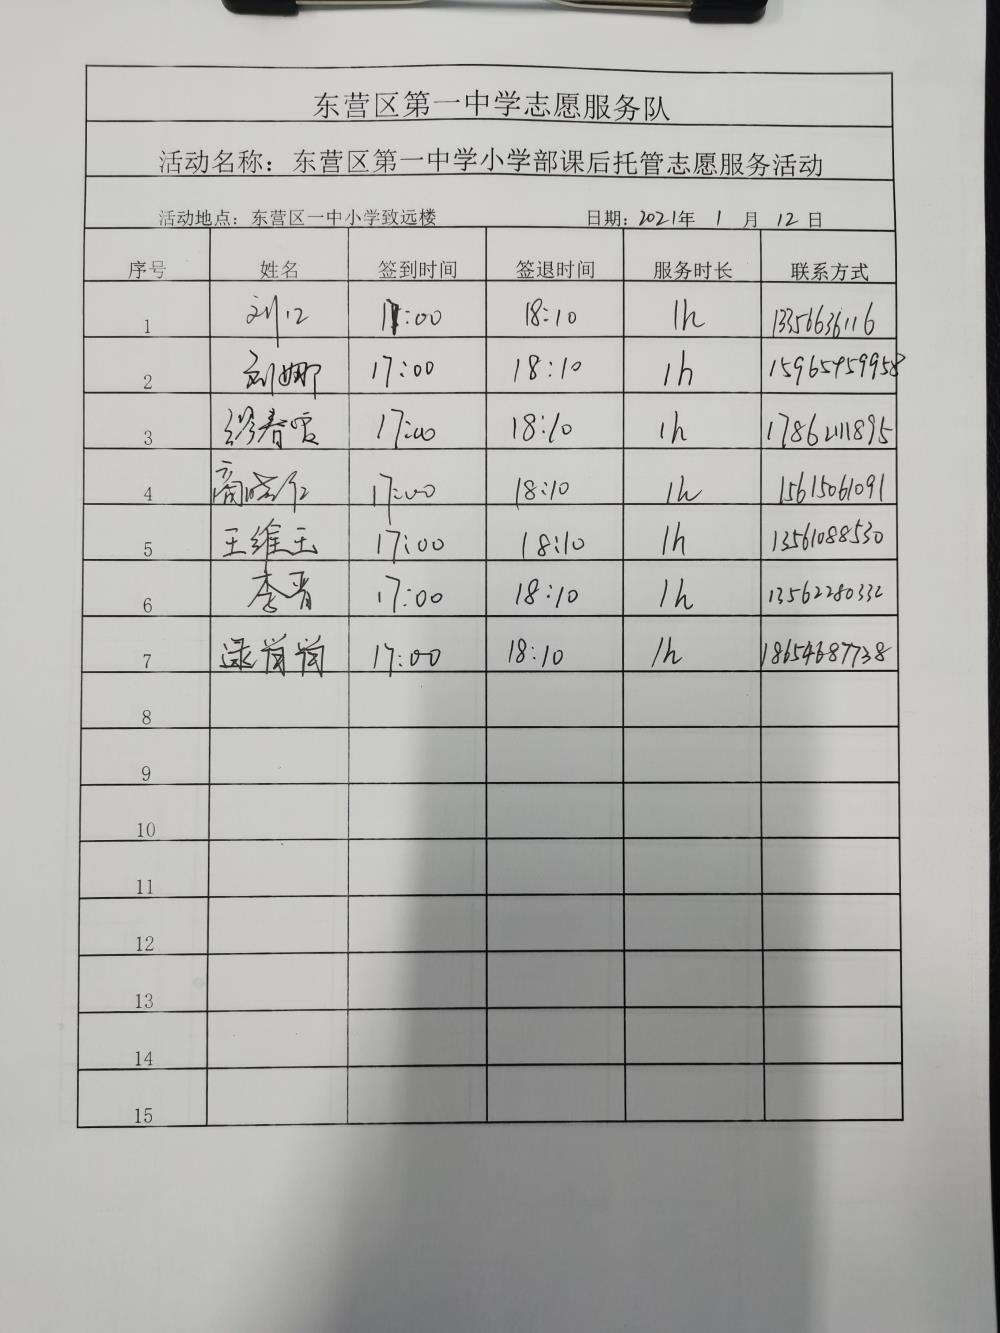 东营区第一中学志愿服务队
活动名称：东营区第一中学小学部课后托管志愿服务活动
活动地点：东营区一中小学致远楼 日期：2021年 1 月 12 日
序号 姓名 签到时间 签退时间 服务时长 联系方式
1 刘 17:00 18:10 1h 13356636116
2 刘娜 17:00 18:10 1h 15965459958
3 17:00 18:10 1h 17862111895
4 商晓 17:00 18:10 1h 15615061091
5 王维玉 17:00 18:10 1h 13561088530
6 李晋 17:00 18:10 1h 13562280332
7 17:00 18:10 1h 18654687738
8
9
10
11
12
13
14
15